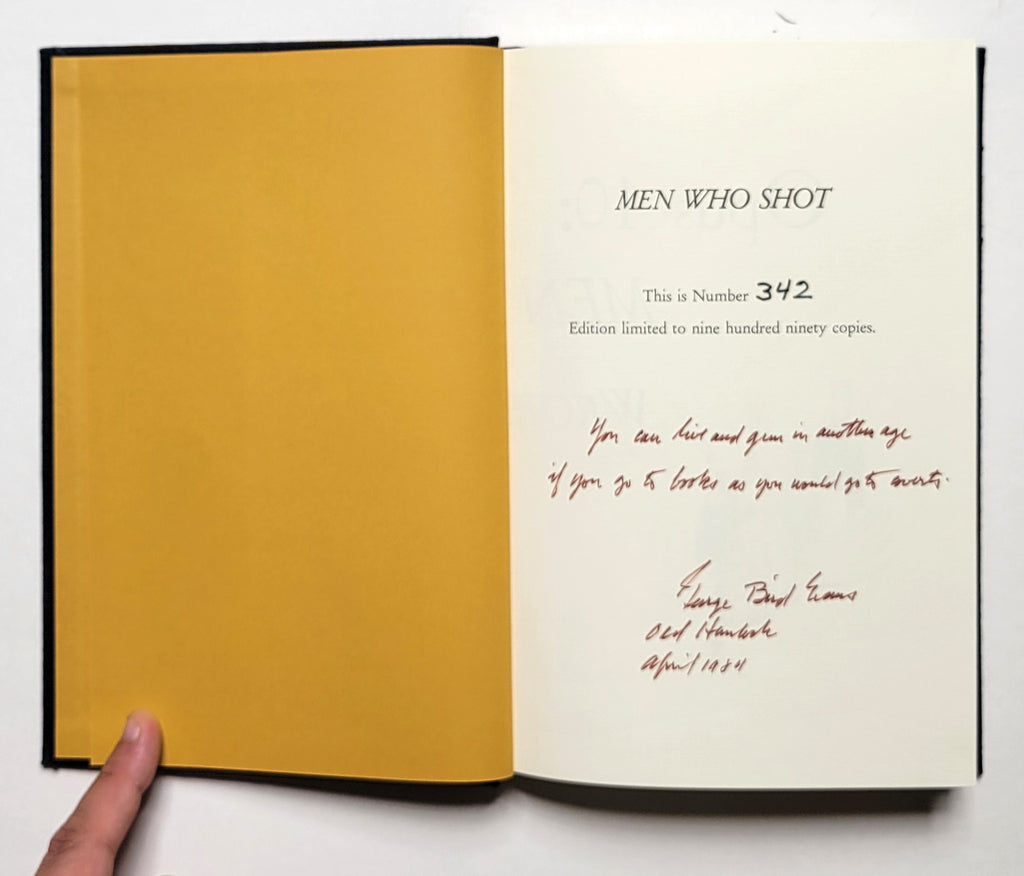 MEN WHO SHOT
This is Number 342
Edition limited to nine hundred ninety copies.
You can live and gun in another age
if you go to books as you would go to coverts.
George Bird Evans
Old Hemlock
April 1984